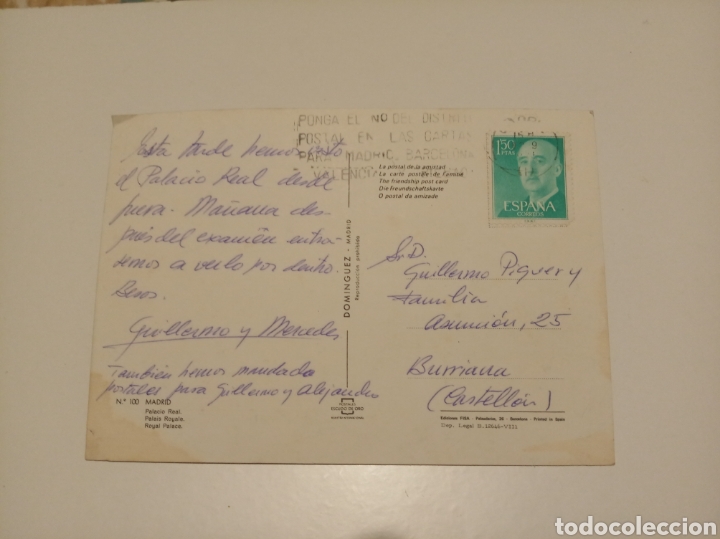 PONGA EL NO DEL DISTRITO
POSTAL EN LAS CARTAS
PARA MADRID, BARCELONA
VALENCIA
Esta tarde hemos visto
el Palacio Real desde
fuera. Mañana des-
pués del examen entra-
remos a verlo por dentro.
Besos.
Guillermo y Mercedes
También hemos mandado
postales para Guillermo y Alejandro
Nº 100 MADRID
Palacio Real.
Palais Royale.
Royal Palace.
La postal de la amistad
La carte postale de l'amitié
The friendship post card
Die Freundschaftskarte
O postal da amizade
DOMINGUEZ - MADRID
Reproducción prohibida
ESCUDO DE ORO
1'50
PTAS
ESPAÑA
CORREOS
S.D.
Guillermo Piquer y
Familia
Asunción, 25
Burriana
(Castellón)
Ediciones FISA - Palaudarias, 26 - Barcelona Printed in Spain
Dep. Legal B.
todocoleccion